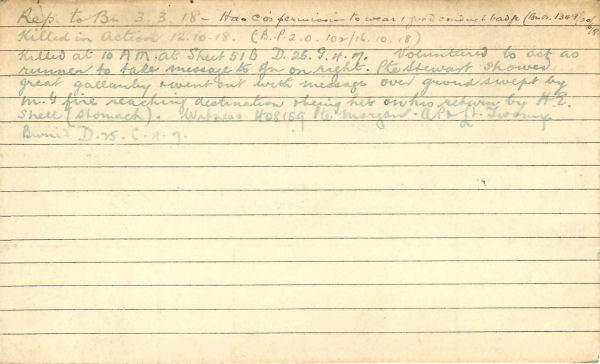 Rep. to Bn 3.3.18 - Has C.O's permission to wear 1 good conduct badge
Killed in Action 12.10.18. (B.P 2.0. 102/16.10.18)
Killed at 10 A.M. at Sheet 51B D.26. Volunteered to act as
runner to take message to Bn on right. Pte Stewart showed
great gallantry & went out with message over ground swept by
M.G fire reaching destination & being hit on his return by H.E.
Shell (stomach). Witness 408159 Pte Morgan
Buried D.25.